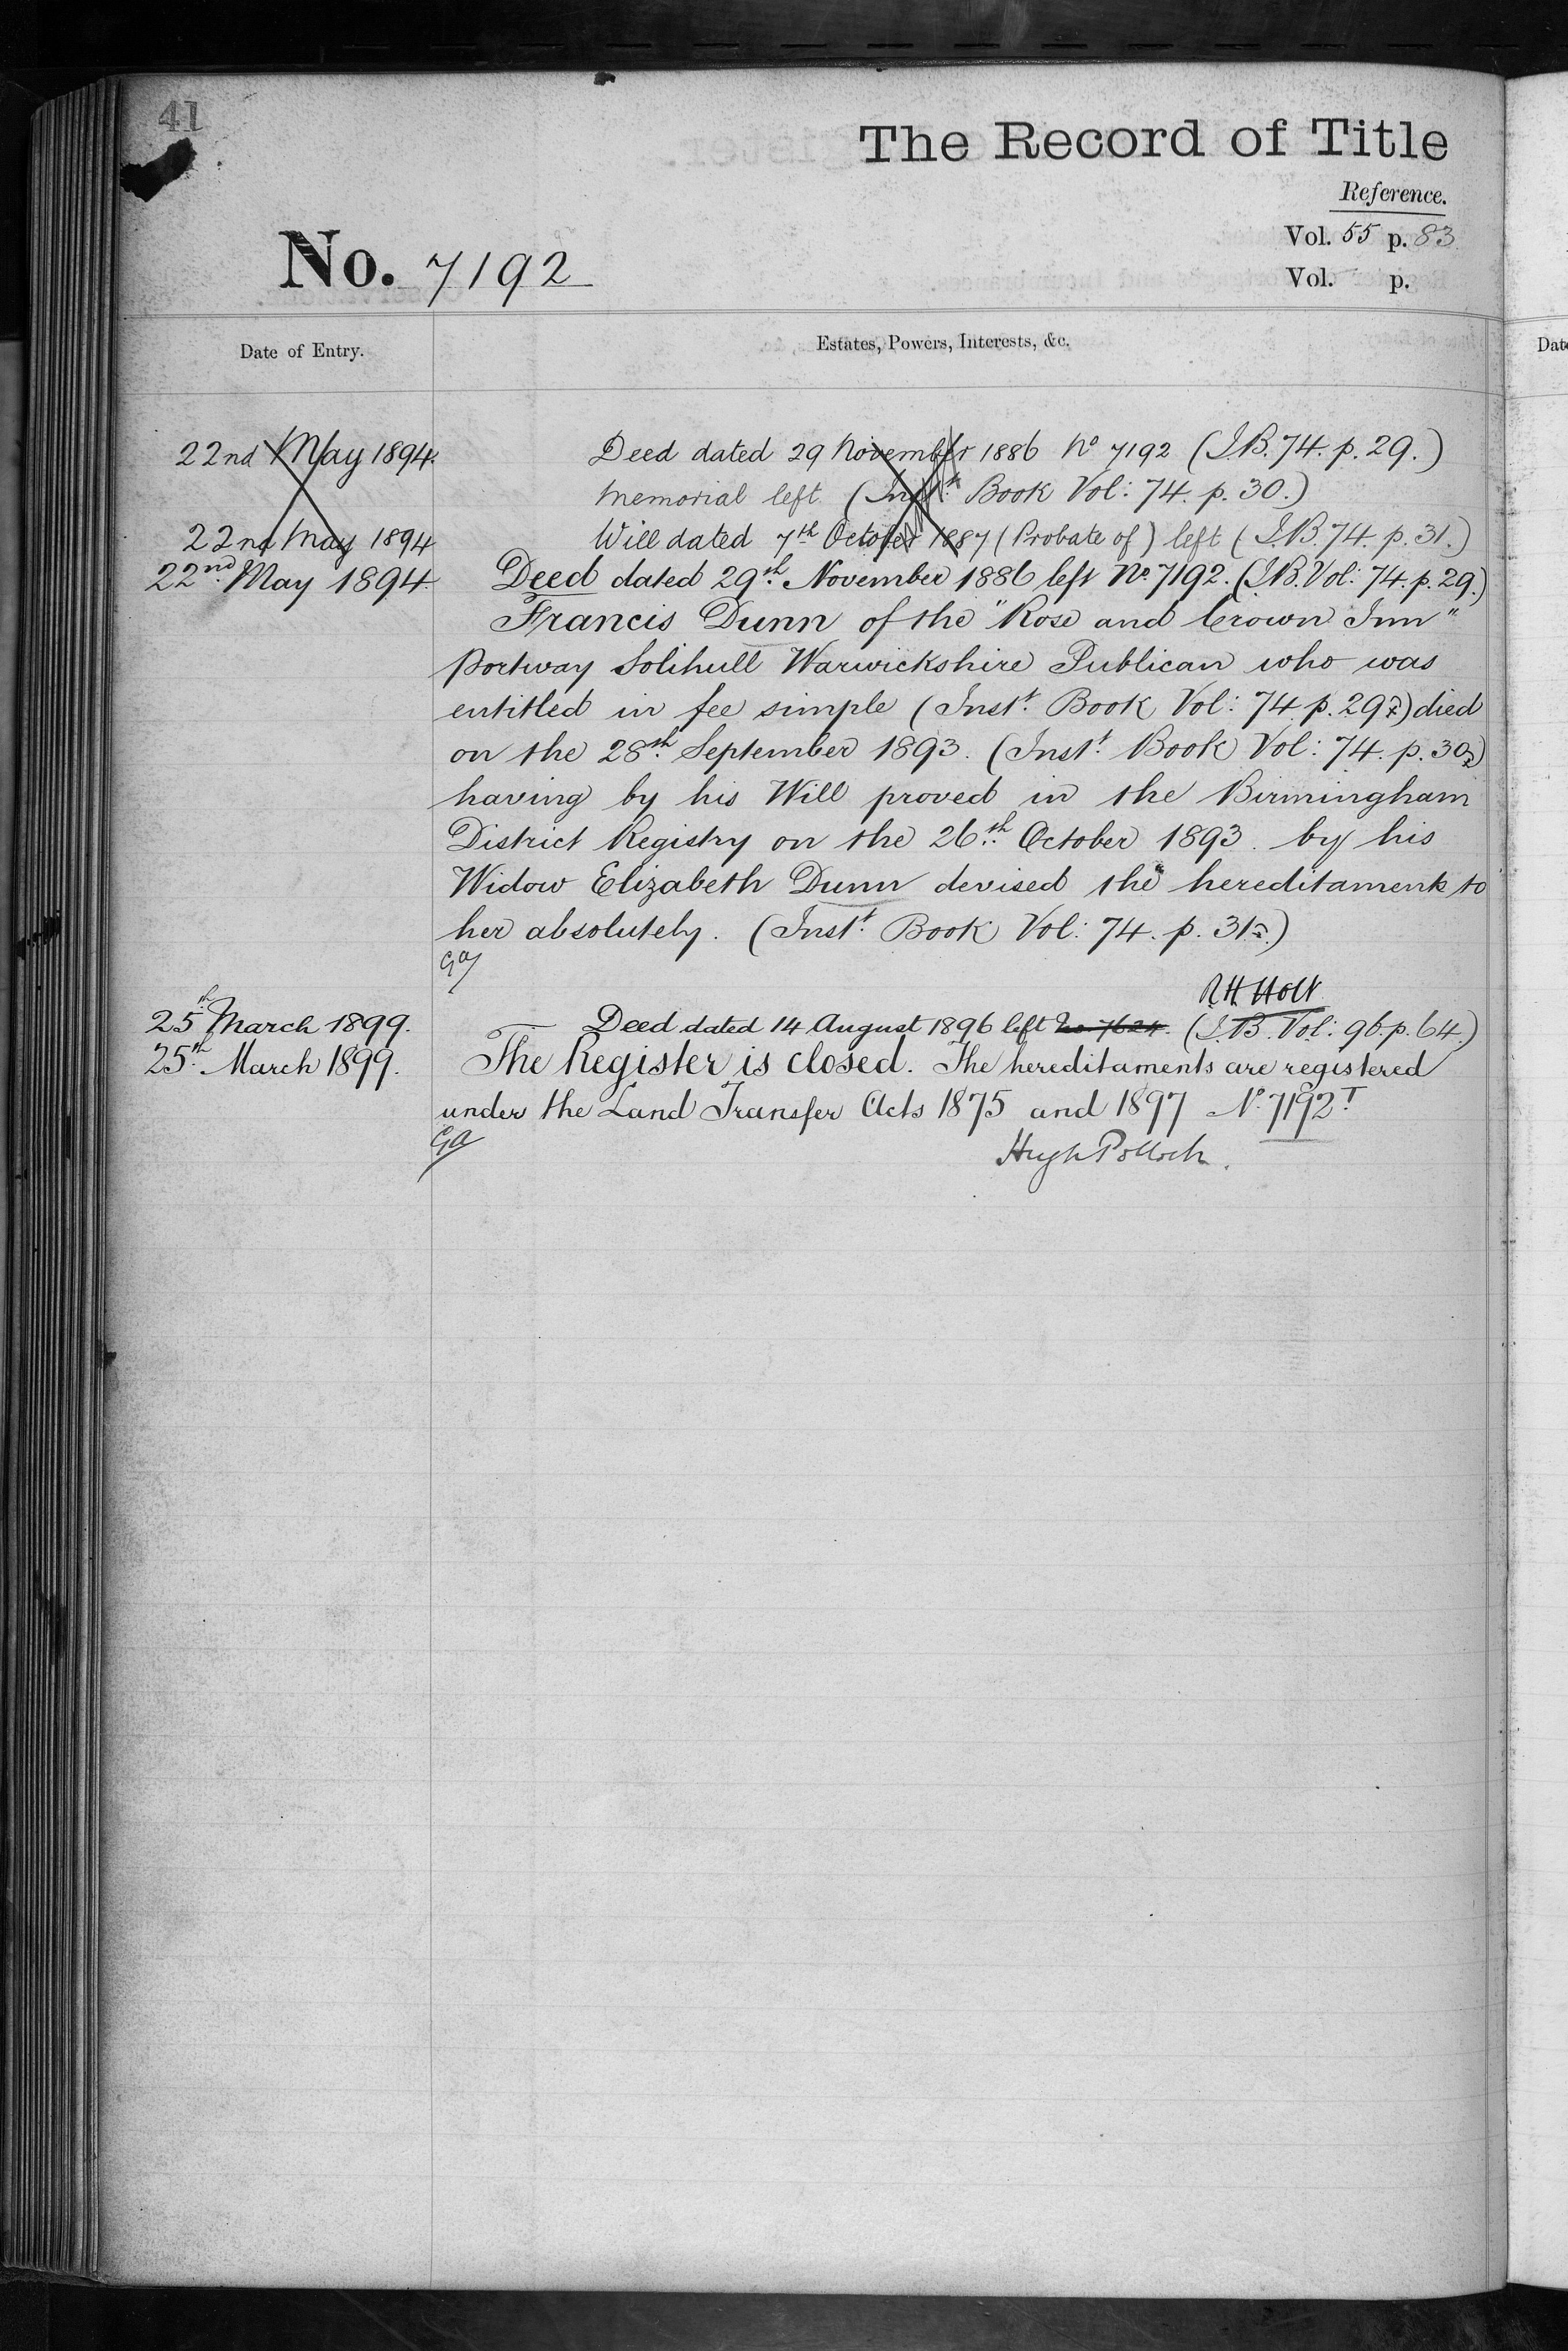 41
The Record of Title
Reference.
Vol. 55 p. 83
No. 7192
Vol. p.
Date of Entry.
Estates, Powers, Interests, &c.
Date
22nd May 1894. Deed dated 29 November 1886 No 7192 (I.B. 74. p. 29.)
Memorial left (Inst.t Book Vol: 74. p. 30.)
22nd May 1894 Will dated 7th October 1887 (Probate of) left (I.B. 74. p. 31.)
22nd May 1894. Deed dated 29th November 1886 left No. 7192. (I.B. Vol: 74. p. 29.)
Francis Dunn of the "Rose and Crown Inn"
Portway Solihull Warwickshire Publican who was
entitled in fee simple (Inst.t Book Vol: 74 p. 29) died
on the 28th September 1893. (Inst.t Book Vol: 74. p. 30)
having by his Will proved in the Birmingham
District Registry on the 26th October 1893. by his
Widow Elizabeth Dunn devised the hereditaments to
her absolutely. (Inst.t Book Vol: 74. p. 31.)
GA
R H Holt
25th March 1899. Deed dated 14 August 1896 left No. 7624. (I.B. Vol: 96. p. 64.)
25th March 1899. The Register is closed. The hereditaments are registered
under the Land Transfer Acts 1875 and 1897 No. 7192T
GA
Hugh Pollock.